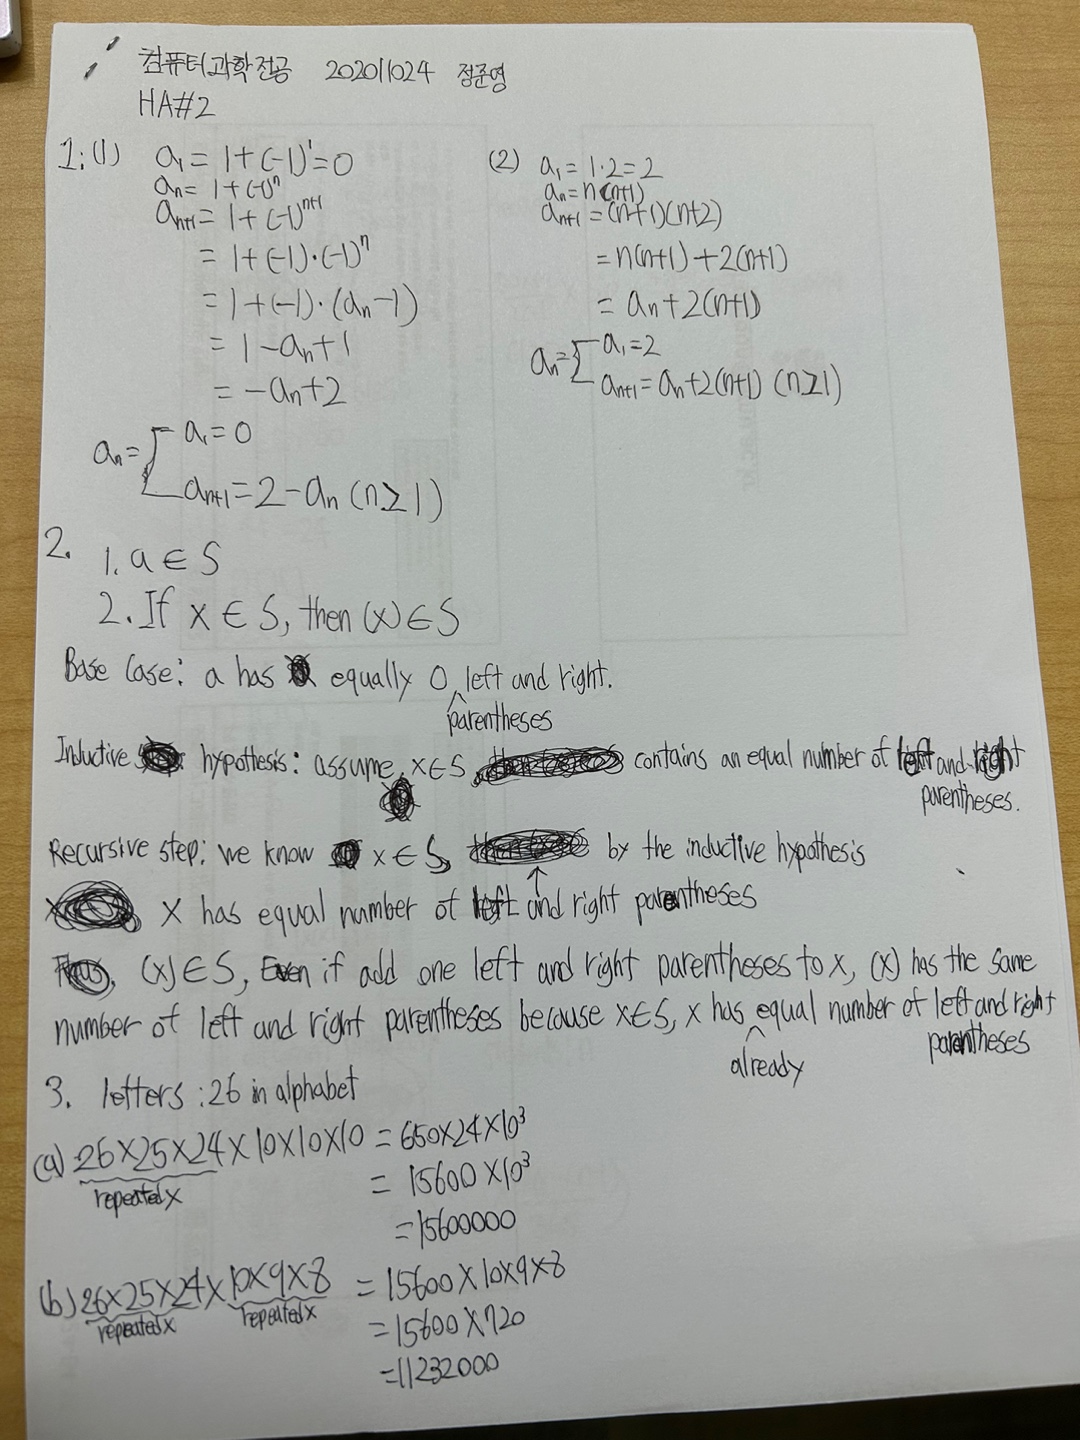 컴퓨터과학전공 202011024 정준영
HA#2
1. (1) a₁ = 1+(-1)¹=0
aₙ= 1+(-1)ⁿ
aₙ₊₁= 1+(-1)ⁿ⁺¹
= 1+(-1)·(-1)ⁿ
= 1+(-1)·(aₙ-1)
= 1-aₙ+1
= -aₙ+2
aₙ= a₁=0
aₙ₊₁=2-aₙ (n≥1)
(2) a₁=1·2=2
aₙ=n(n+1)
aₙ₊₁=(n+1)(n+2)
=n(n+1)+2(n+1)
= aₙ+2(n+1)
aₙ= a₁=2
aₙ₊₁=aₙ+2(n+1) (n≥1)
2.
1. a∈S
2. If x∈S, then (x)∈S
Base Case: a has equally 0 parentheses left and right.
Inductive hypothesis: assume x∈S, contains an equal number of left and right
parentheses.
Recursive step: we know x∈S, by the inductive hypothesis
x has equal number of left and right parentheses
(x)∈S, Even if add one left and right parentheses to x, (x) has the same
number of left and right parentheses because x∈S, x has already equal number of left and right
parentheses
3. letters : 26 in alphabet
(a) 26×25×24×10×10×10 = 650×24×10³
repeated x
= 15600×10³
=15600000
(b) 26×25×24×10×9×8 = 15600×10×9×8
repeated x repeated x
=15600×720
=11232000